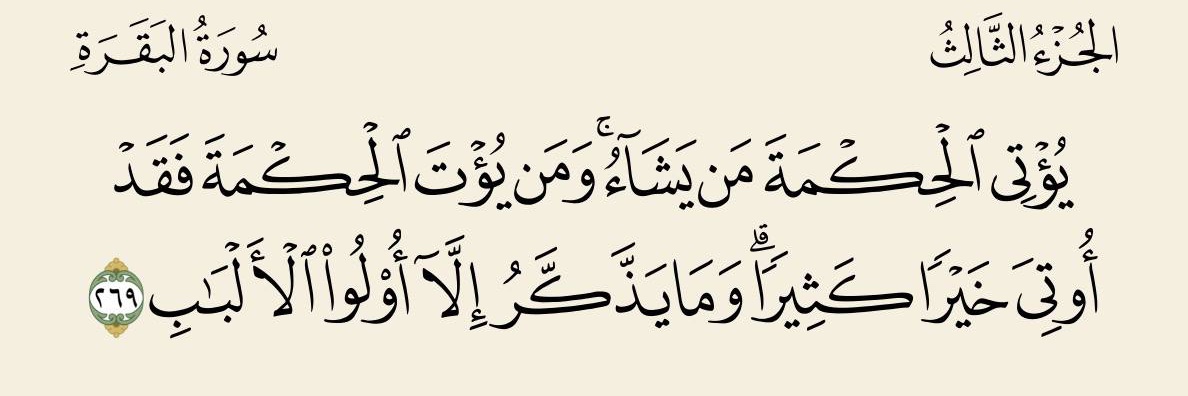 الجُزْءُ الثَّالِثُ سُورَةُ البَقَرَةِ
يُؤْتِى ٱلْحِكْمَةَ مَن يَشَآءُ ۚ وَمَن يُؤْتَ ٱلْحِكْمَةَ فَقَدْ
أُوتِىَ خَيْرًا كَثِيرًا ۗ وَمَا يَذَّكَّرُ إِلَّآ أُوْلُواْ ٱلْأَلْبَـٰبِ ٢٦٩